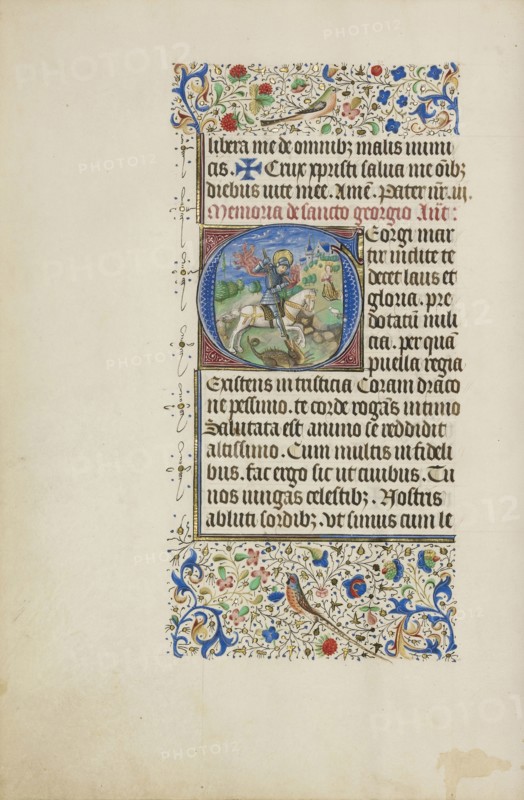 libera me de omnibꝫ malis inimi
cis. ✠ Crux xpristi salua me oībꝫ
diebus uite mee. Amē. Pater nr̄. iii.
Memoria de sancto georgio Ant̄:
GEorgi mar
tir inclite te
decet laus et
gloria. pre
dotatū mili
tia. per quā
puella regia
Existens in tristicia Coram draco
ne pessimo. te corde rogās intimo
Saluata est animo se reddidit
altissimo. Cum multis in fideli
bus. fac ergo sic ut ciuibus. Tu
nos iungas celestibꝫ. Nostris
abluti sordibꝫ. vt simus cum le
PHOTO12